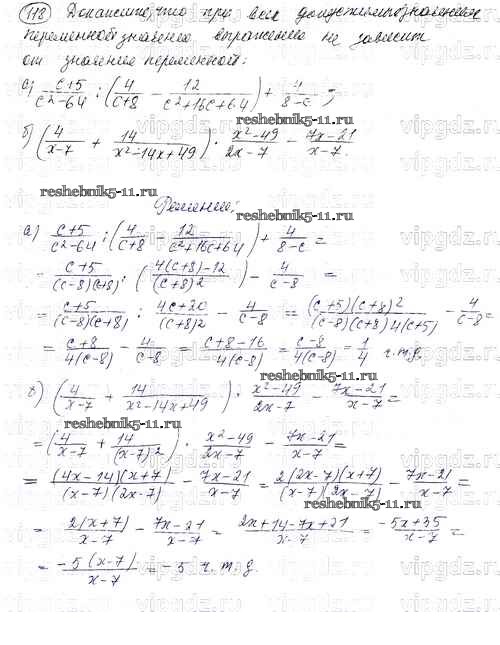 118 Докажите, что при всех допустимых значениях
переменной значение выражение не зависит
от значение переменной:
а) c+5/c²-64 : (4/c+8 - 12/c²+16c+64) + 4/8-c;
reshebnik5-11.ru
б) (4/x-7 + 14/x²-14x+49) · x²-49/2x-7 - 7x-21/x-7.
reshebnik5-11.ru
reshebnik5-11.ru
Решение:
а) c+5/c²-64 : (4/c+8 - 12/c²+16c+64) + 4/8-c =
- c+5/(c-8)(c+8) : (4(c+8)-12/(c+8)²) - 4/c-8 =
= c+5/(c-8)(c+8) : 4c+20/(c+8)² - 4/c-8 = (c+5)(c+8)²/(c-8)(c+8)4(c+5) - 4/c-8 =
= c+8/4(c-8) - 4/c-8 = c+8-16/4(c-8) = c-8/4(c-8) = 1/4 ч.т.д.
reshebnik5-11.ru
б) (4/x-7 + 14/x²-14x+49) · x²-49/2x-7 - 7x-21/x-7 =
reshebnik5-11.ru
= (4/x-7 + 14/(x-7)²) · x²-49/2x-7 - 7x-21/x-7 =
= (4x-14)(x+7)/(x-7)(2x-7) - 7x-21/x-7 = 2(2x-7)(x+7)/(x-7)(2x-7) - 7x-21/x-7 =
= 2(x+7)/x-7 - 7x-21/x-7 = 2x+14-7x+21/x-7 = -5x+35/x-7 =
= -5(x-7)/x-7 = -5 ч.т.д.
reshebnik5-11.ru
vipgdz.ru